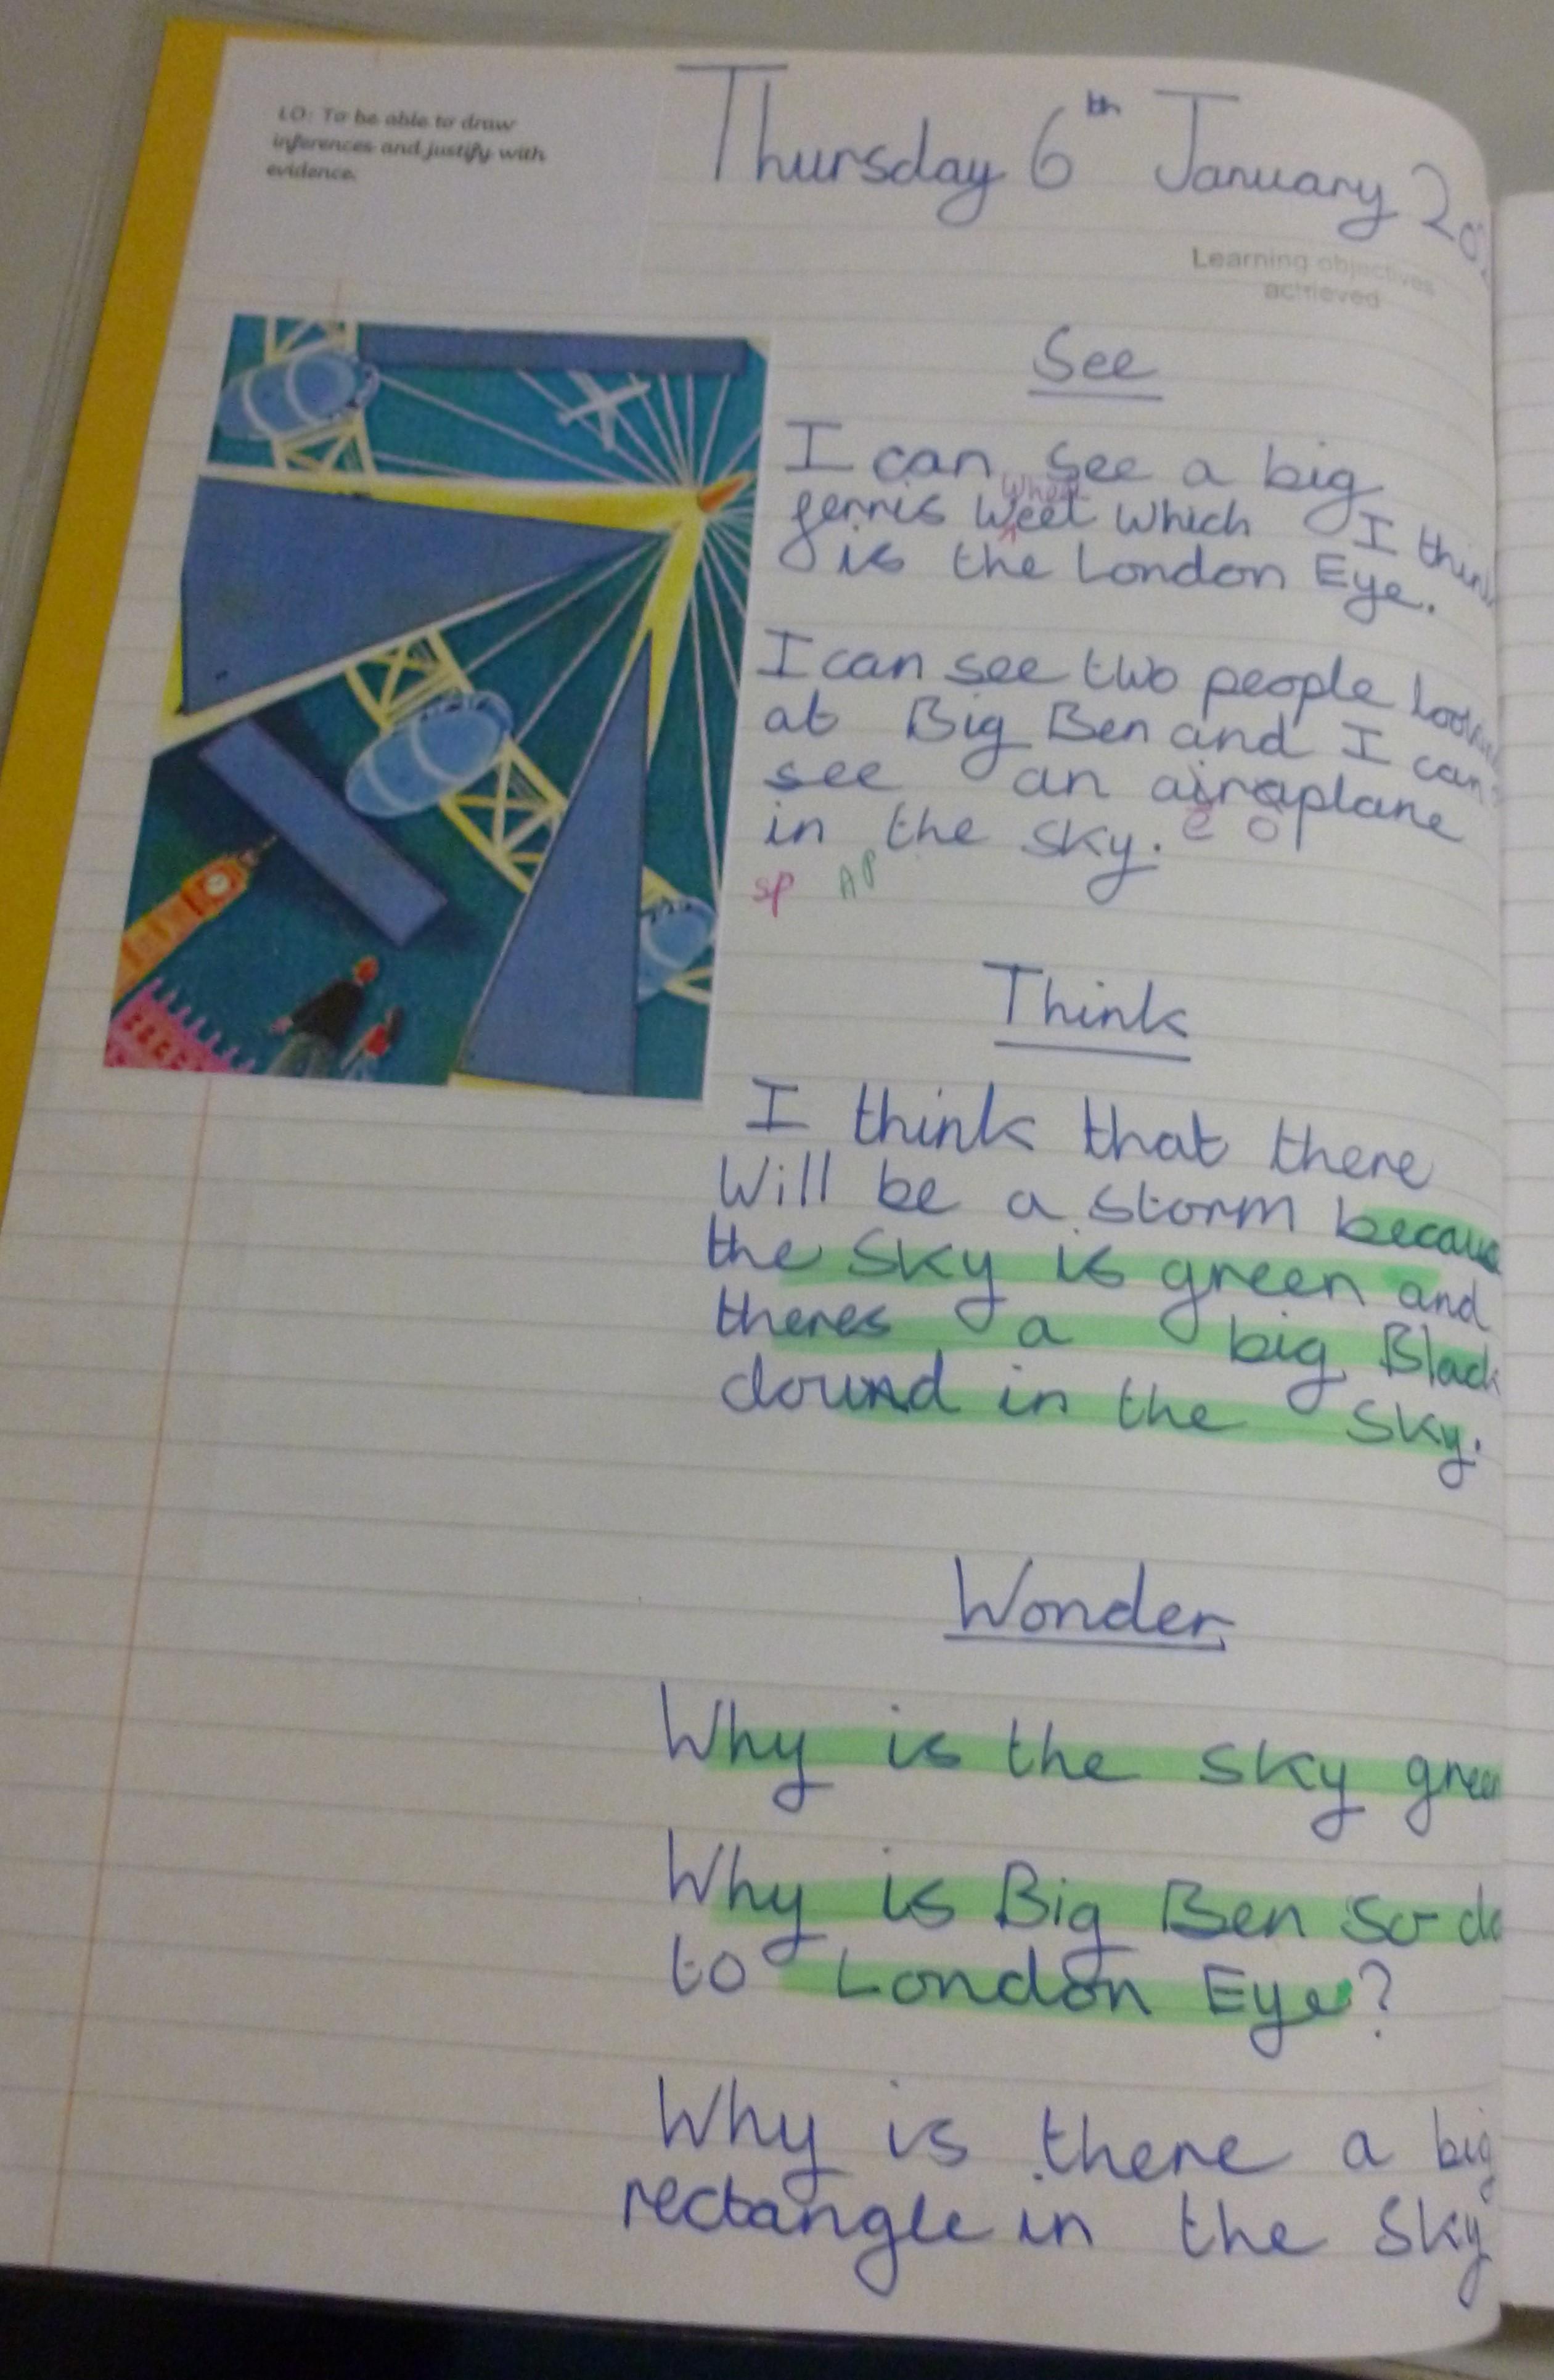 LO: To be able to draw
inferences and justify with
evidence.
Thursday 6th January
Learning objectives
achieved
See
I can see a big
ferris weel which I think
wheel
is the London Eye.
I can see two people
at Big Ben and I can
see an airaplane
e o
in the sky.
sp AP
Think
I think that there
Will be a storm because
the sky is green and
theres a big Black
in the sky.
Wonder
Why is the sky green
Why is Big Ben so
to London Eye?
Why is there a big
rectangle in the sky